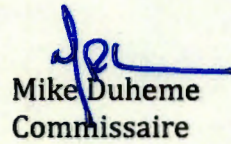 Mike Duheme
Commissaire